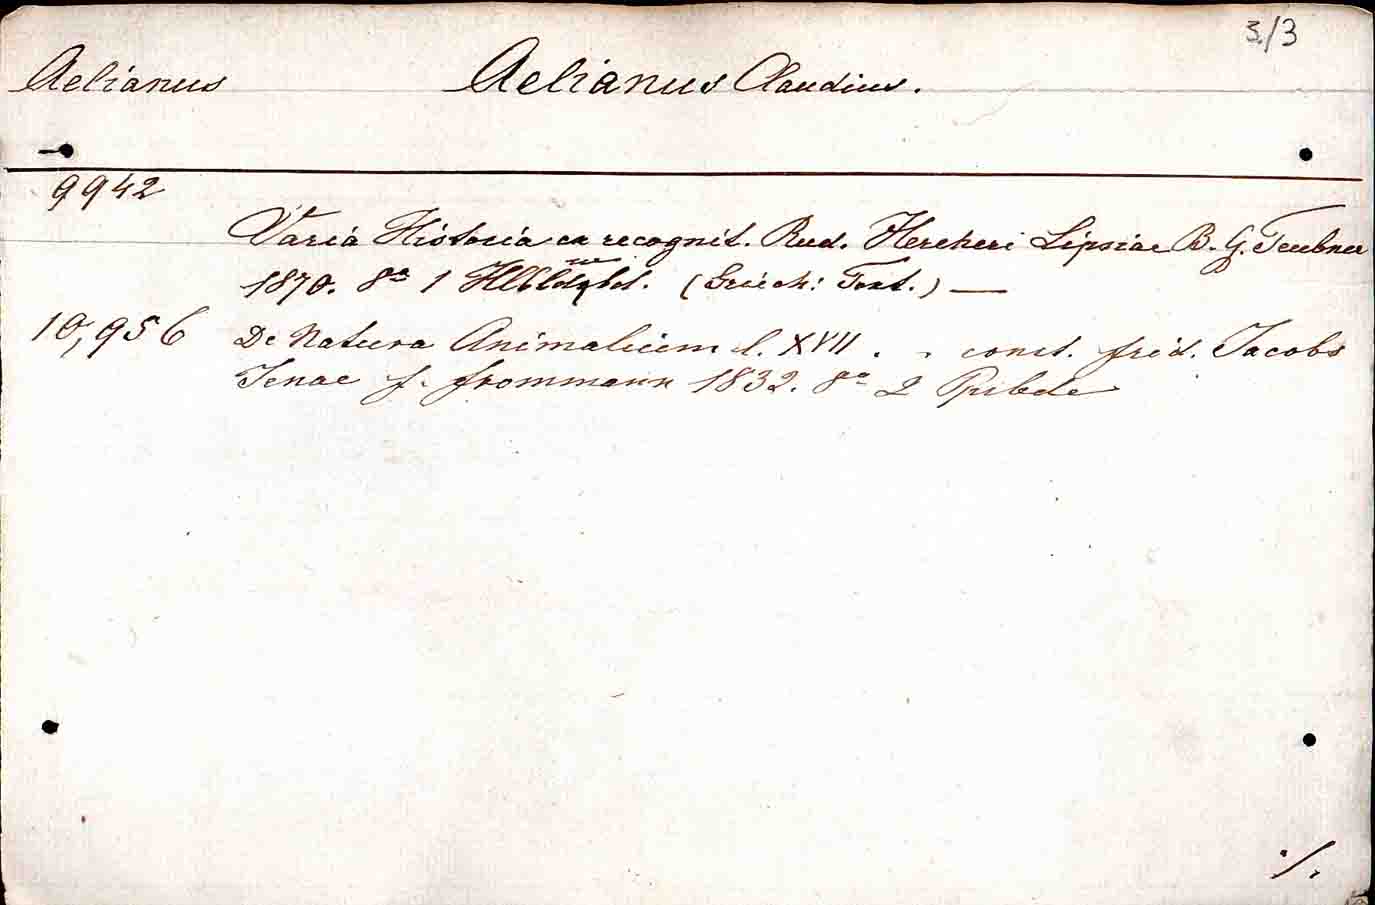 3/3
Aelianus Aelianus Claudius.
9942
Varia Historia ex recognit. Rud. Hercheri Lipsiae B. G. Teubner
1870. 8º 1 (Griech: Text.) —
10,956 De Natura Animalium l. XVII . . const. Frid. Jacobs
Jenae F. Frommann 1832. 8º 2 Ppbde
./.